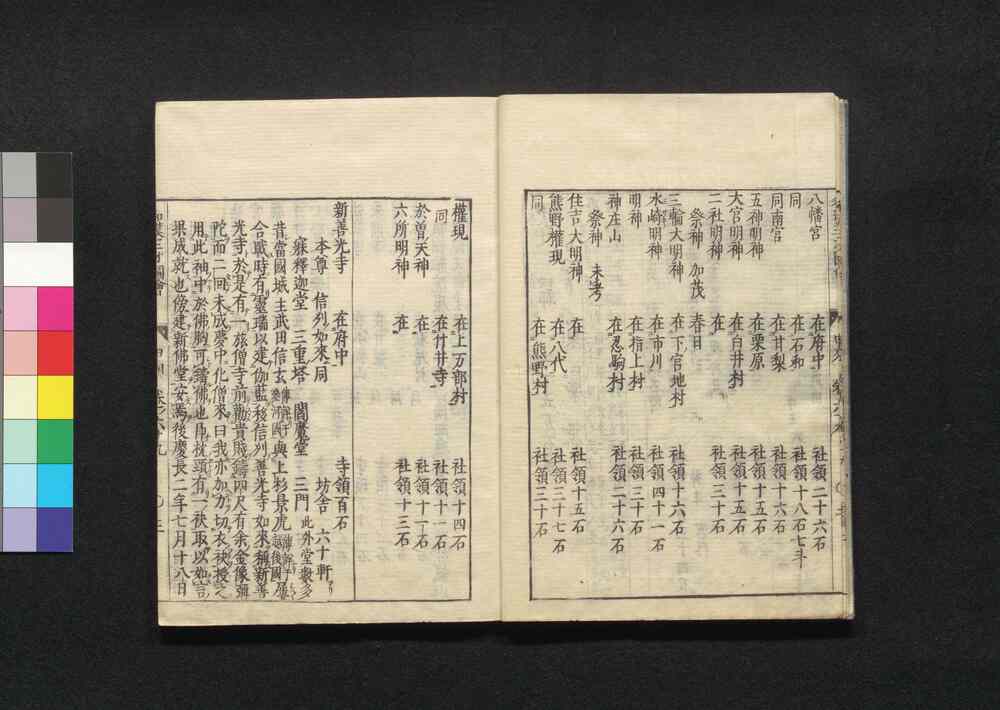 八幡宮 在府中 社領二十六石
同 在石和 社領十八石七斗
同南宮 在甘梨 社領十六石
五神明神 在栗原 社領十五石
大宮明神 在白井村 社領十五石
二社明神 在 社領三十石
祭神 加茂 春日
三輪大明神 在下官地村 社領十六石
氷崎明神 在市川 社領四十一石
明神 在指上村 社領三十石
神庄山 在忍駒村 社領二十六石
祭神 未考
住吉大明神 在 社領十五石
熊野權現 在八代 社領三十七石
同 在熊野村 社領三十石
權現 在上万部村 社領十四石
同 在竹井寺 社領十一石
於曽天神 在 社領十一石
六所明神 在 社領十三石
新善光寺 在府中 寺領百石
本尊 信列如來同 坊舎 六十軒
寐釋迦堂 三重塔 閻魔堂 三門 此外堂數多
昔當國城主武田信玄與上杉景虎
合戰時有靈瑞以建伽藍移信列善光寺如來稱新善
光寺於是有一旅僧寺前勸貴賤鑄四尺有余金像彌
陀而二囘未成夢中化僧來曰我亦加力切衣袂授之
用此袖中於佛胸可鑄佛也乃枕頭有一袂取以如言
果成就也傍建新佛堂安焉後慶長二年七月十八日